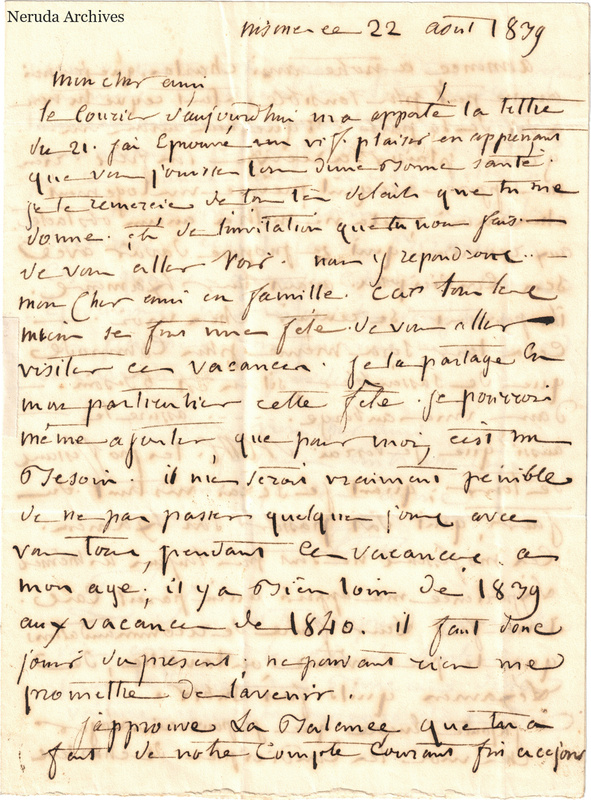 Neruda Archives
22 août 1839
mon cher ami
le Courier d'aujourdhui m'a apporté la lettre
du 21. j'ai Eprouvé un vif plaisir en apprenant
que vous jouissez tous d'une Bonne santé.
je te remercie de tous les details que tu me
donne. et de l'invitation que tu nous fais
de vous aller voir. nous y repondrons
mon Cher ami en famille. car tout le
mien se fait une fête de vous aller
visiter ces vacances. je la partage En
mon particulier cette fête. je pourrois
même ajouter, que pour moi, c'est un
Besoin. il me serai vraiment penible
de ne pas passer quelque jours avec
vous tous, pendant les vacances. a
mon age, il y a Bien loin de 1839
aux vacances de 1840. il faut donc
jouir du present. ne pouvant rien me
promettre de l'avenir.
j'approuve La Balance que tu a
fait de notre Compte Courant